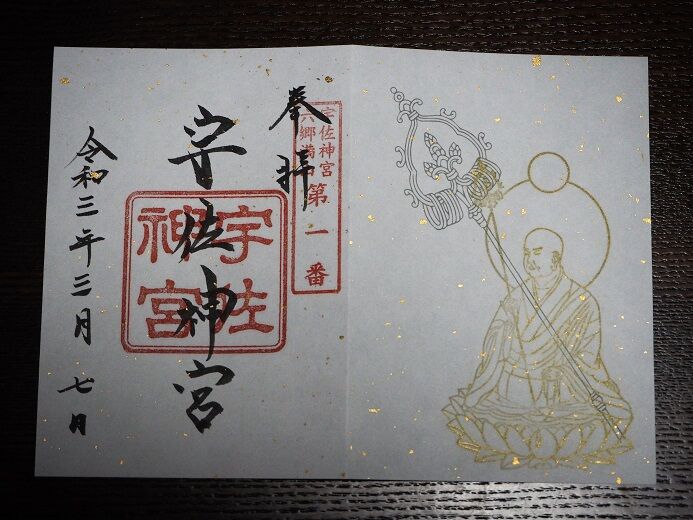 宇佐神宮
六郷満山
第一番
奉拝
宇佐神宮
宇佐
神宮
令和三年三月七日